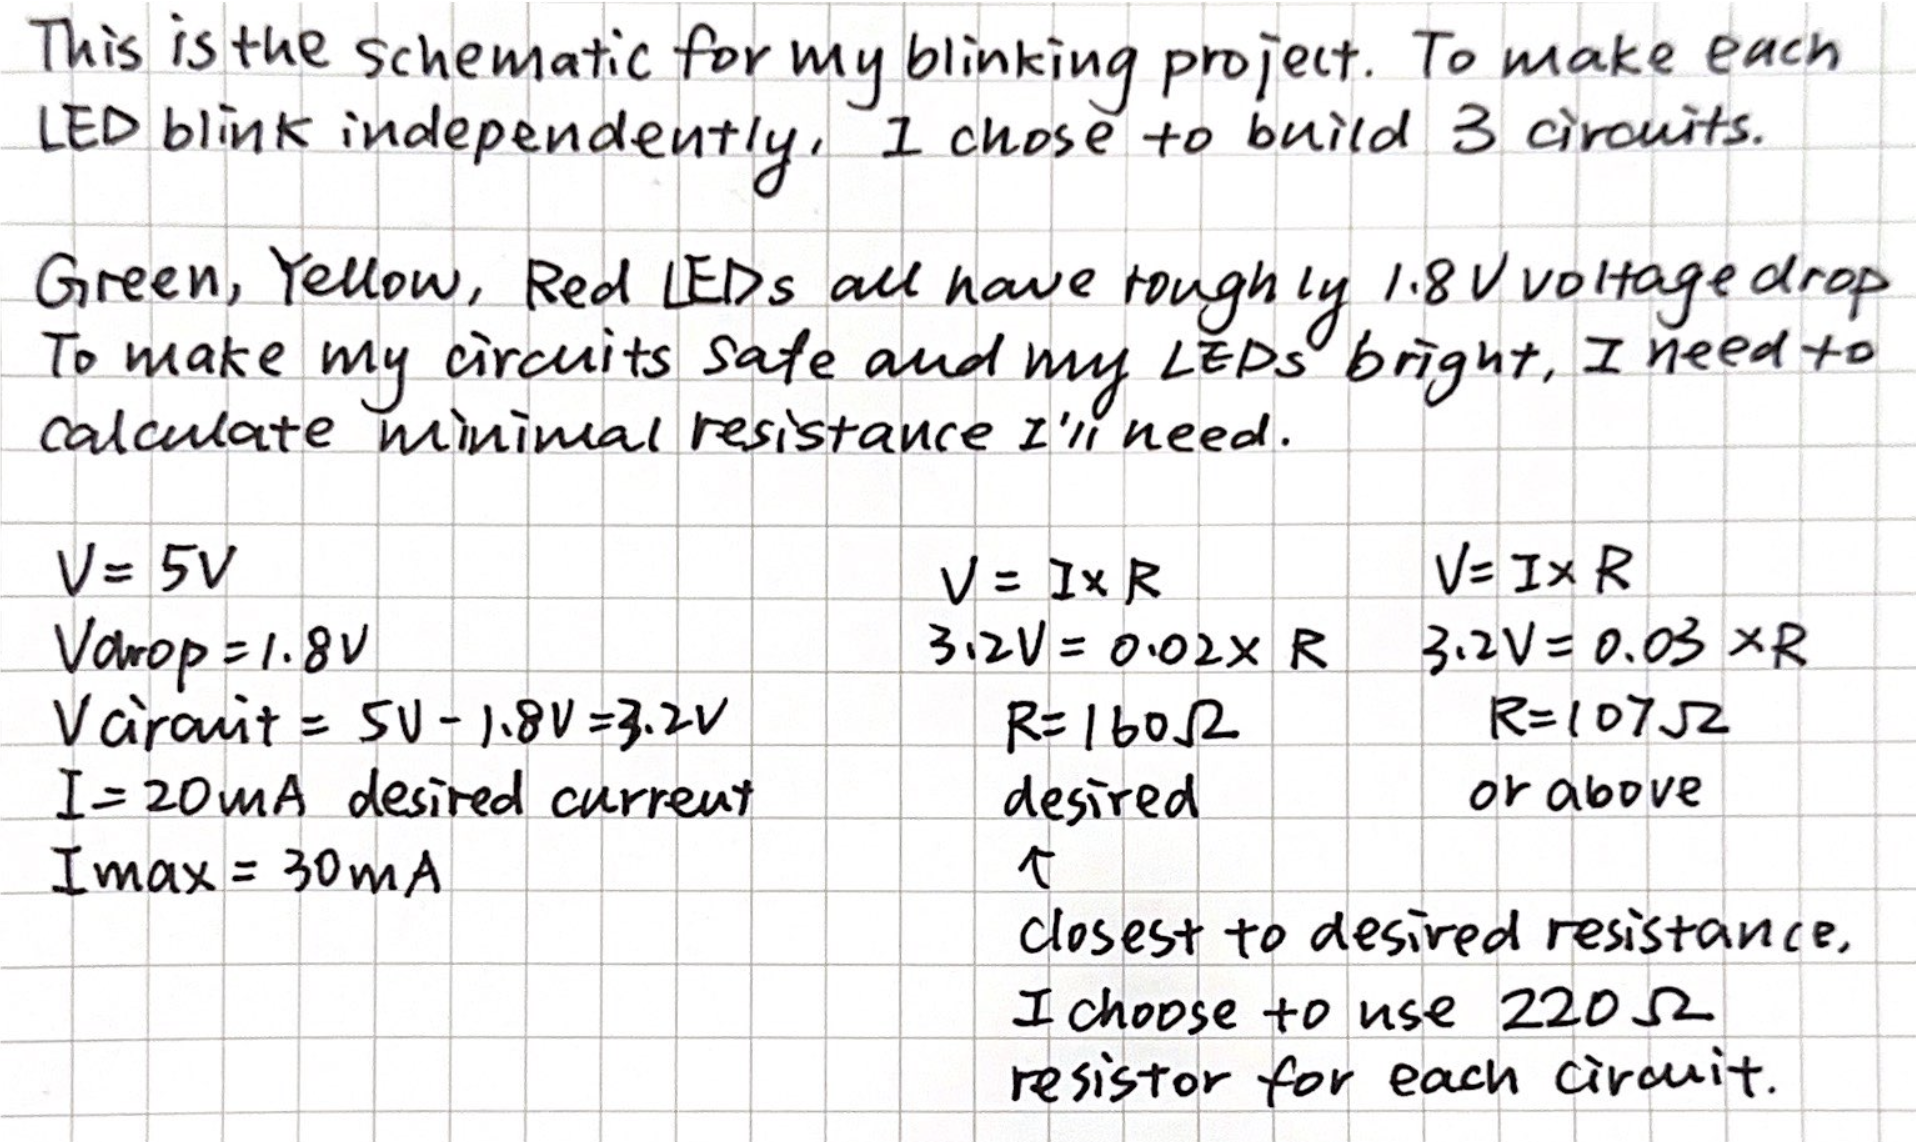 This is the schematic for my blinking project. To make each
LED blink independently, I chose to build 3 circuits.
Green, Yellow, Red LEDs all have roughly 1.8V voltage drop
To make my circuits safe and my LEDs bright, I need to
calculate minimal resistance I'll need.
V = 5V
Vdrop = 1.8V
Vcircuit = 5V - 1.8V = 3.2V
I = 20mA desired current
Imax = 30mA
V = I x R
3.2V = 0.02 x R
R = 160Ω
desired
↑
closest to desired resistance,
I choose to use 220Ω
resistor for each circuit.
V = I x R
3.2V = 0.03 x R
R = 107Ω
or above